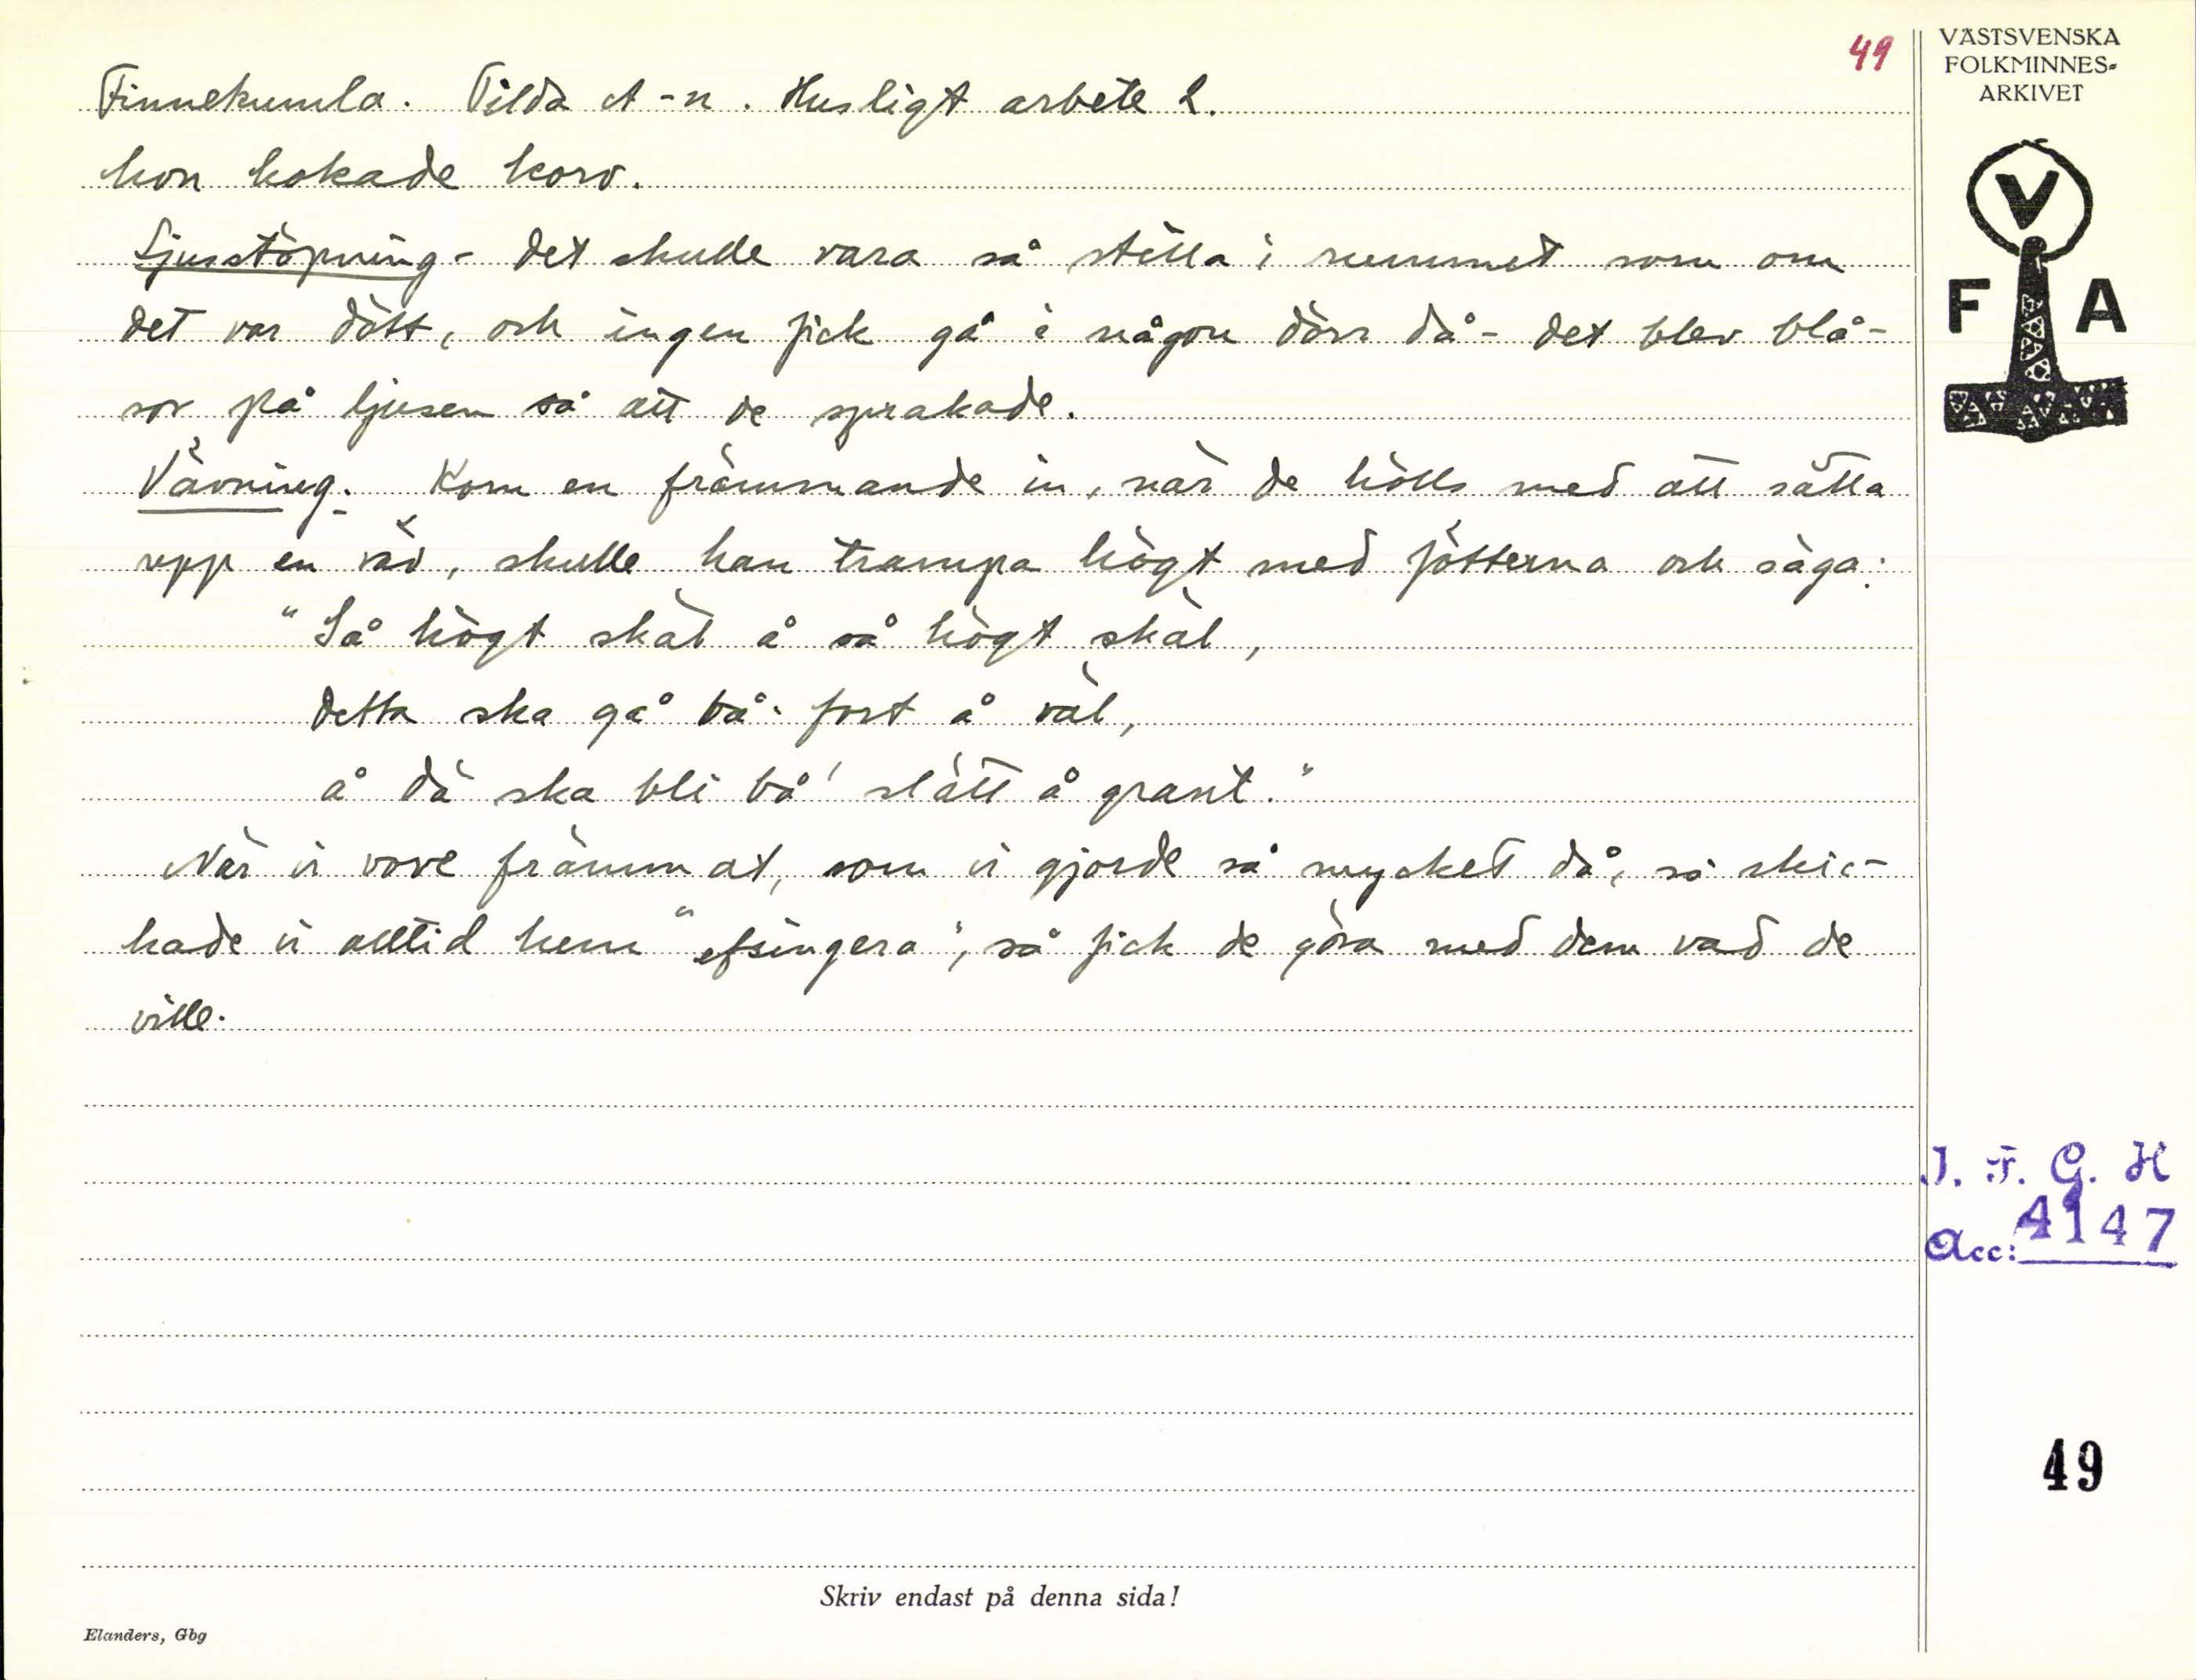 49
VÄSTSVENSKA
FOLKMINNES-
ARKIVET
V
F A
Finnekumla. Tilda A-n. Husligt arbete 2.
hon kokade korv.
Ljusstöpning - det skulle vara så stilla i rummet som om
det var dött, och ingen fick gå i någon dörr då - det blev blå-
sor på ljusen så att de sprakade.
Vävning. Kom en främmande in, när de hölls med att sätta
upp en väv, skulle han trampa högt med fötterna och säga:
"Så högt skäl å så högt skäl,
detta ska gå bå' fort å väl,
å dä ska bli bå' slätt å grant."
När vi vove främmat, som vi gjorde så mycket då, så skic-
kade vi alltid hem "efsingera", så fick de göra med dem vad de
ville.
I. F. G. H
Acc: 4147
49
Skriv endast på denna sida!
Elanders, Gbg